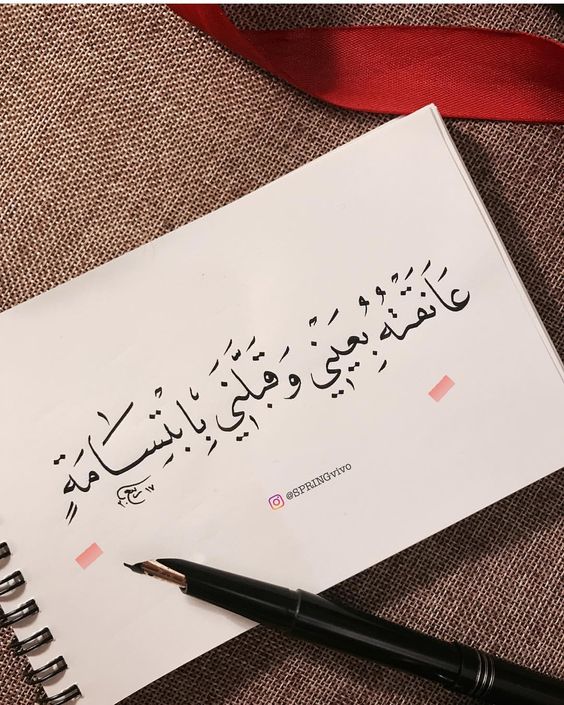 عَانَقَتْهُ بِعَيْنِي وَقَبَّلَنِي بِابْتِسَامَةٍ
ربيع ١٧
@SPRINGvivo